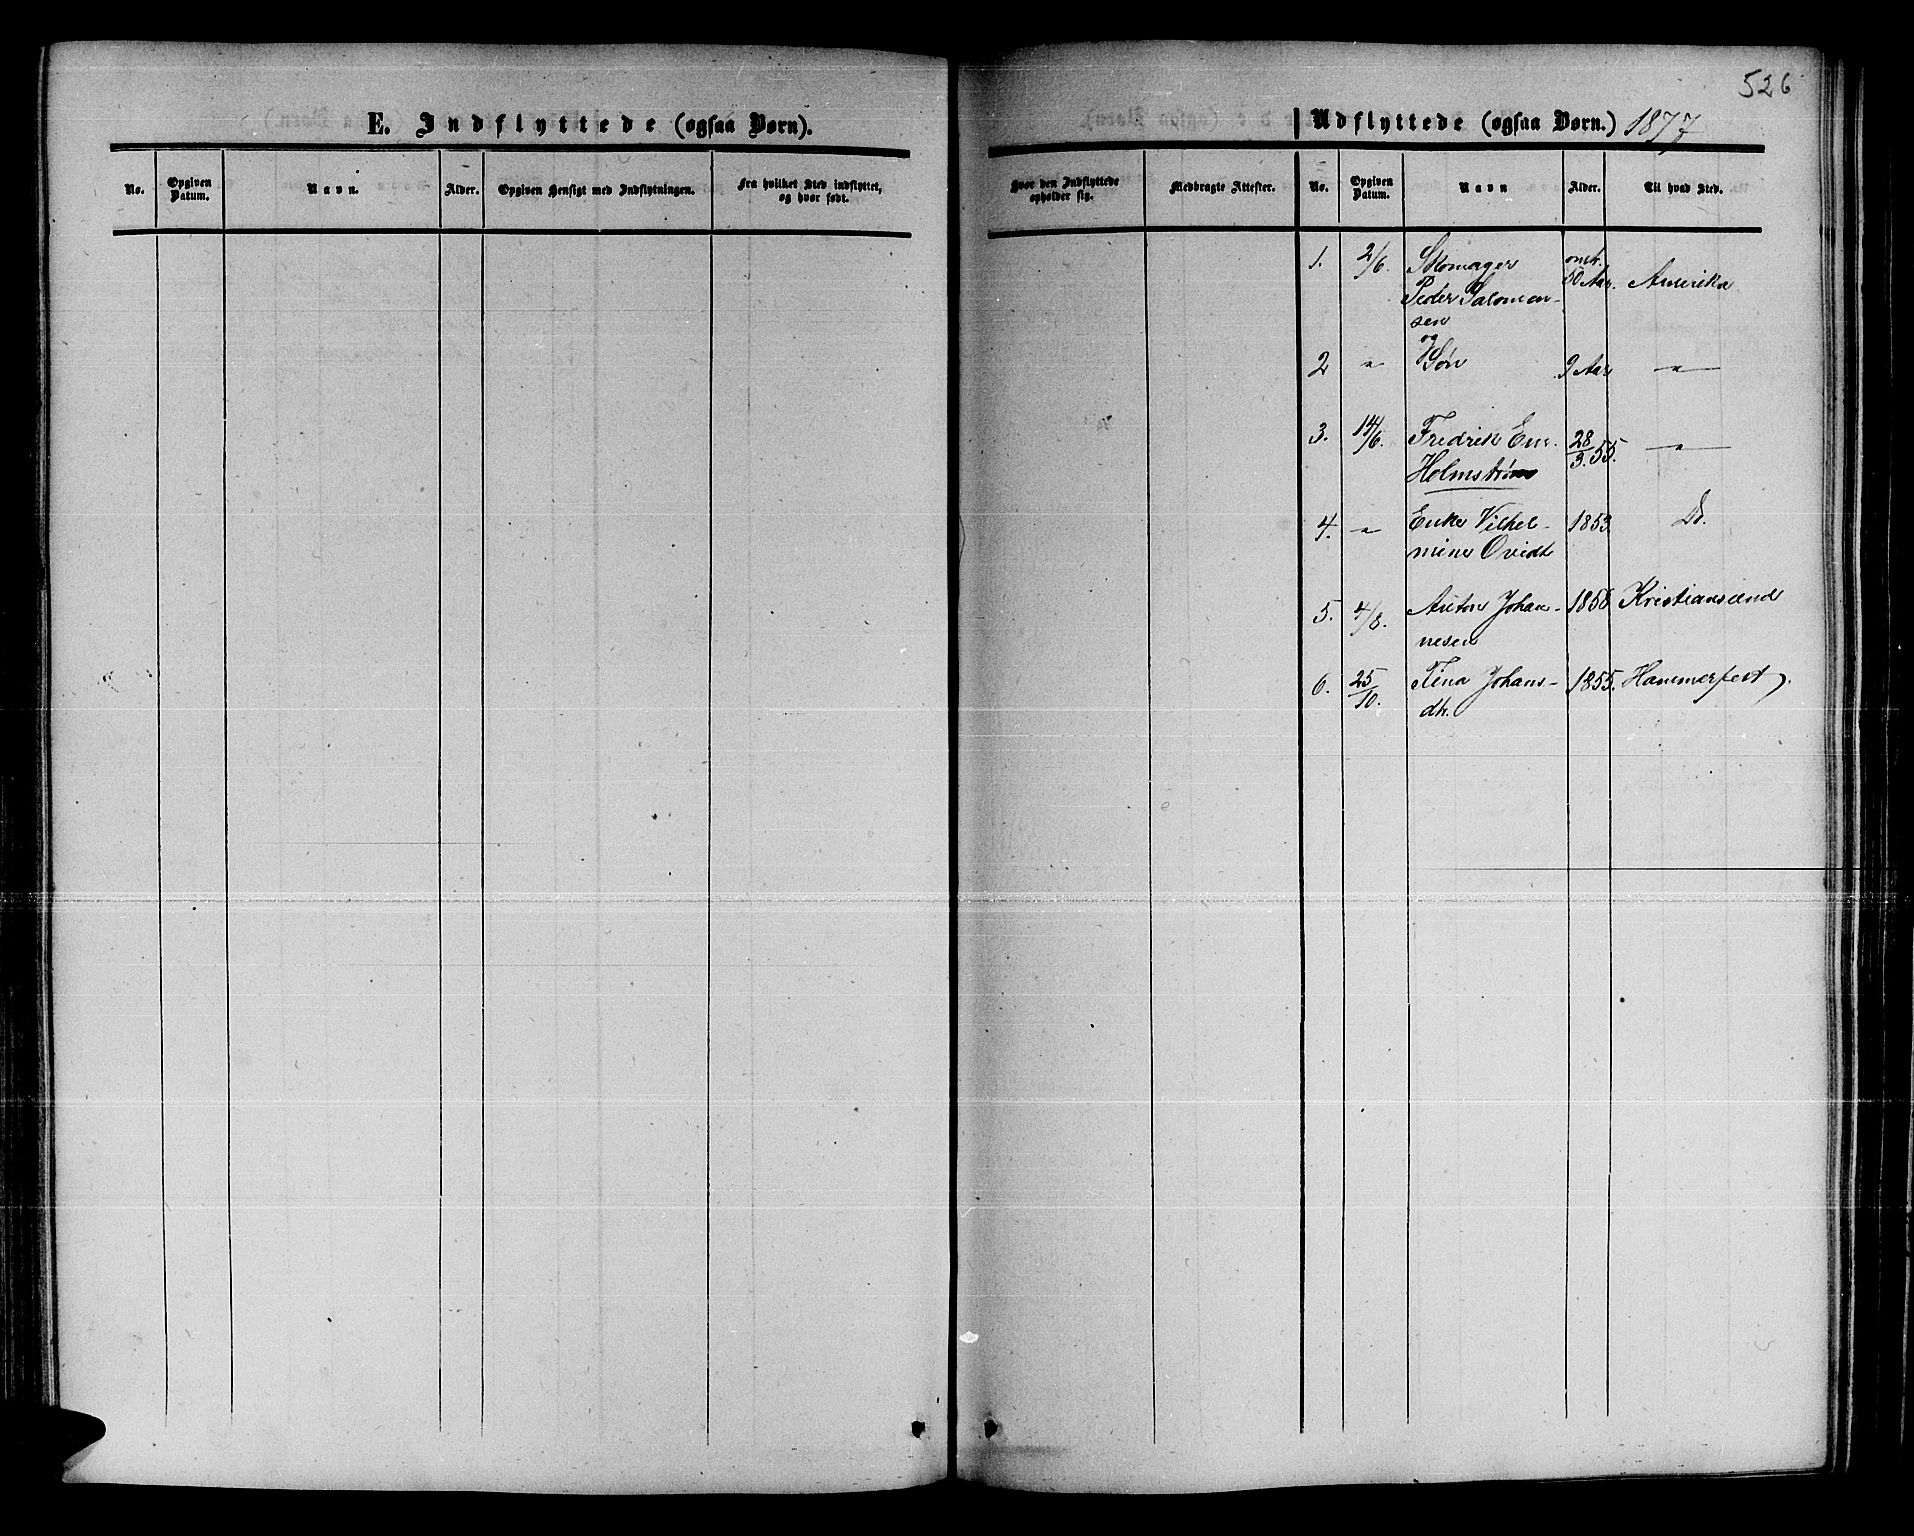 526
E. Indflyttede (ogsaa Børn).
Udflyttede (ogsaa Børn.) 1877
No.
Opgiven
Datum.
Navn.
Alder.
Opgiven Hensigt med Indflytningen.
Fra hvilket Sted indflyttet,
og hvor født.
Hvor den Indflyttede
opholder sig.
Medbragte Attester.
No.
Opgiven
Datum.
Navn
Alder.
Til hvad Sted.
1. 2/6. Skomager omtr.
Peder Salomon- 50 Aar. Amerika
sen
og
2 " Søn 9 Aar "
3. 14/6. Fredrik 28/3. 55. "
Holmstrøm
4. " Enke Vilhel- 1853. Do.
mine Qvidt
5. 4/8. Anton Johan- 1856 Kristiansund
nesen
6. 25/10. Tina Johans- 1855. Hammerfest
dtr.